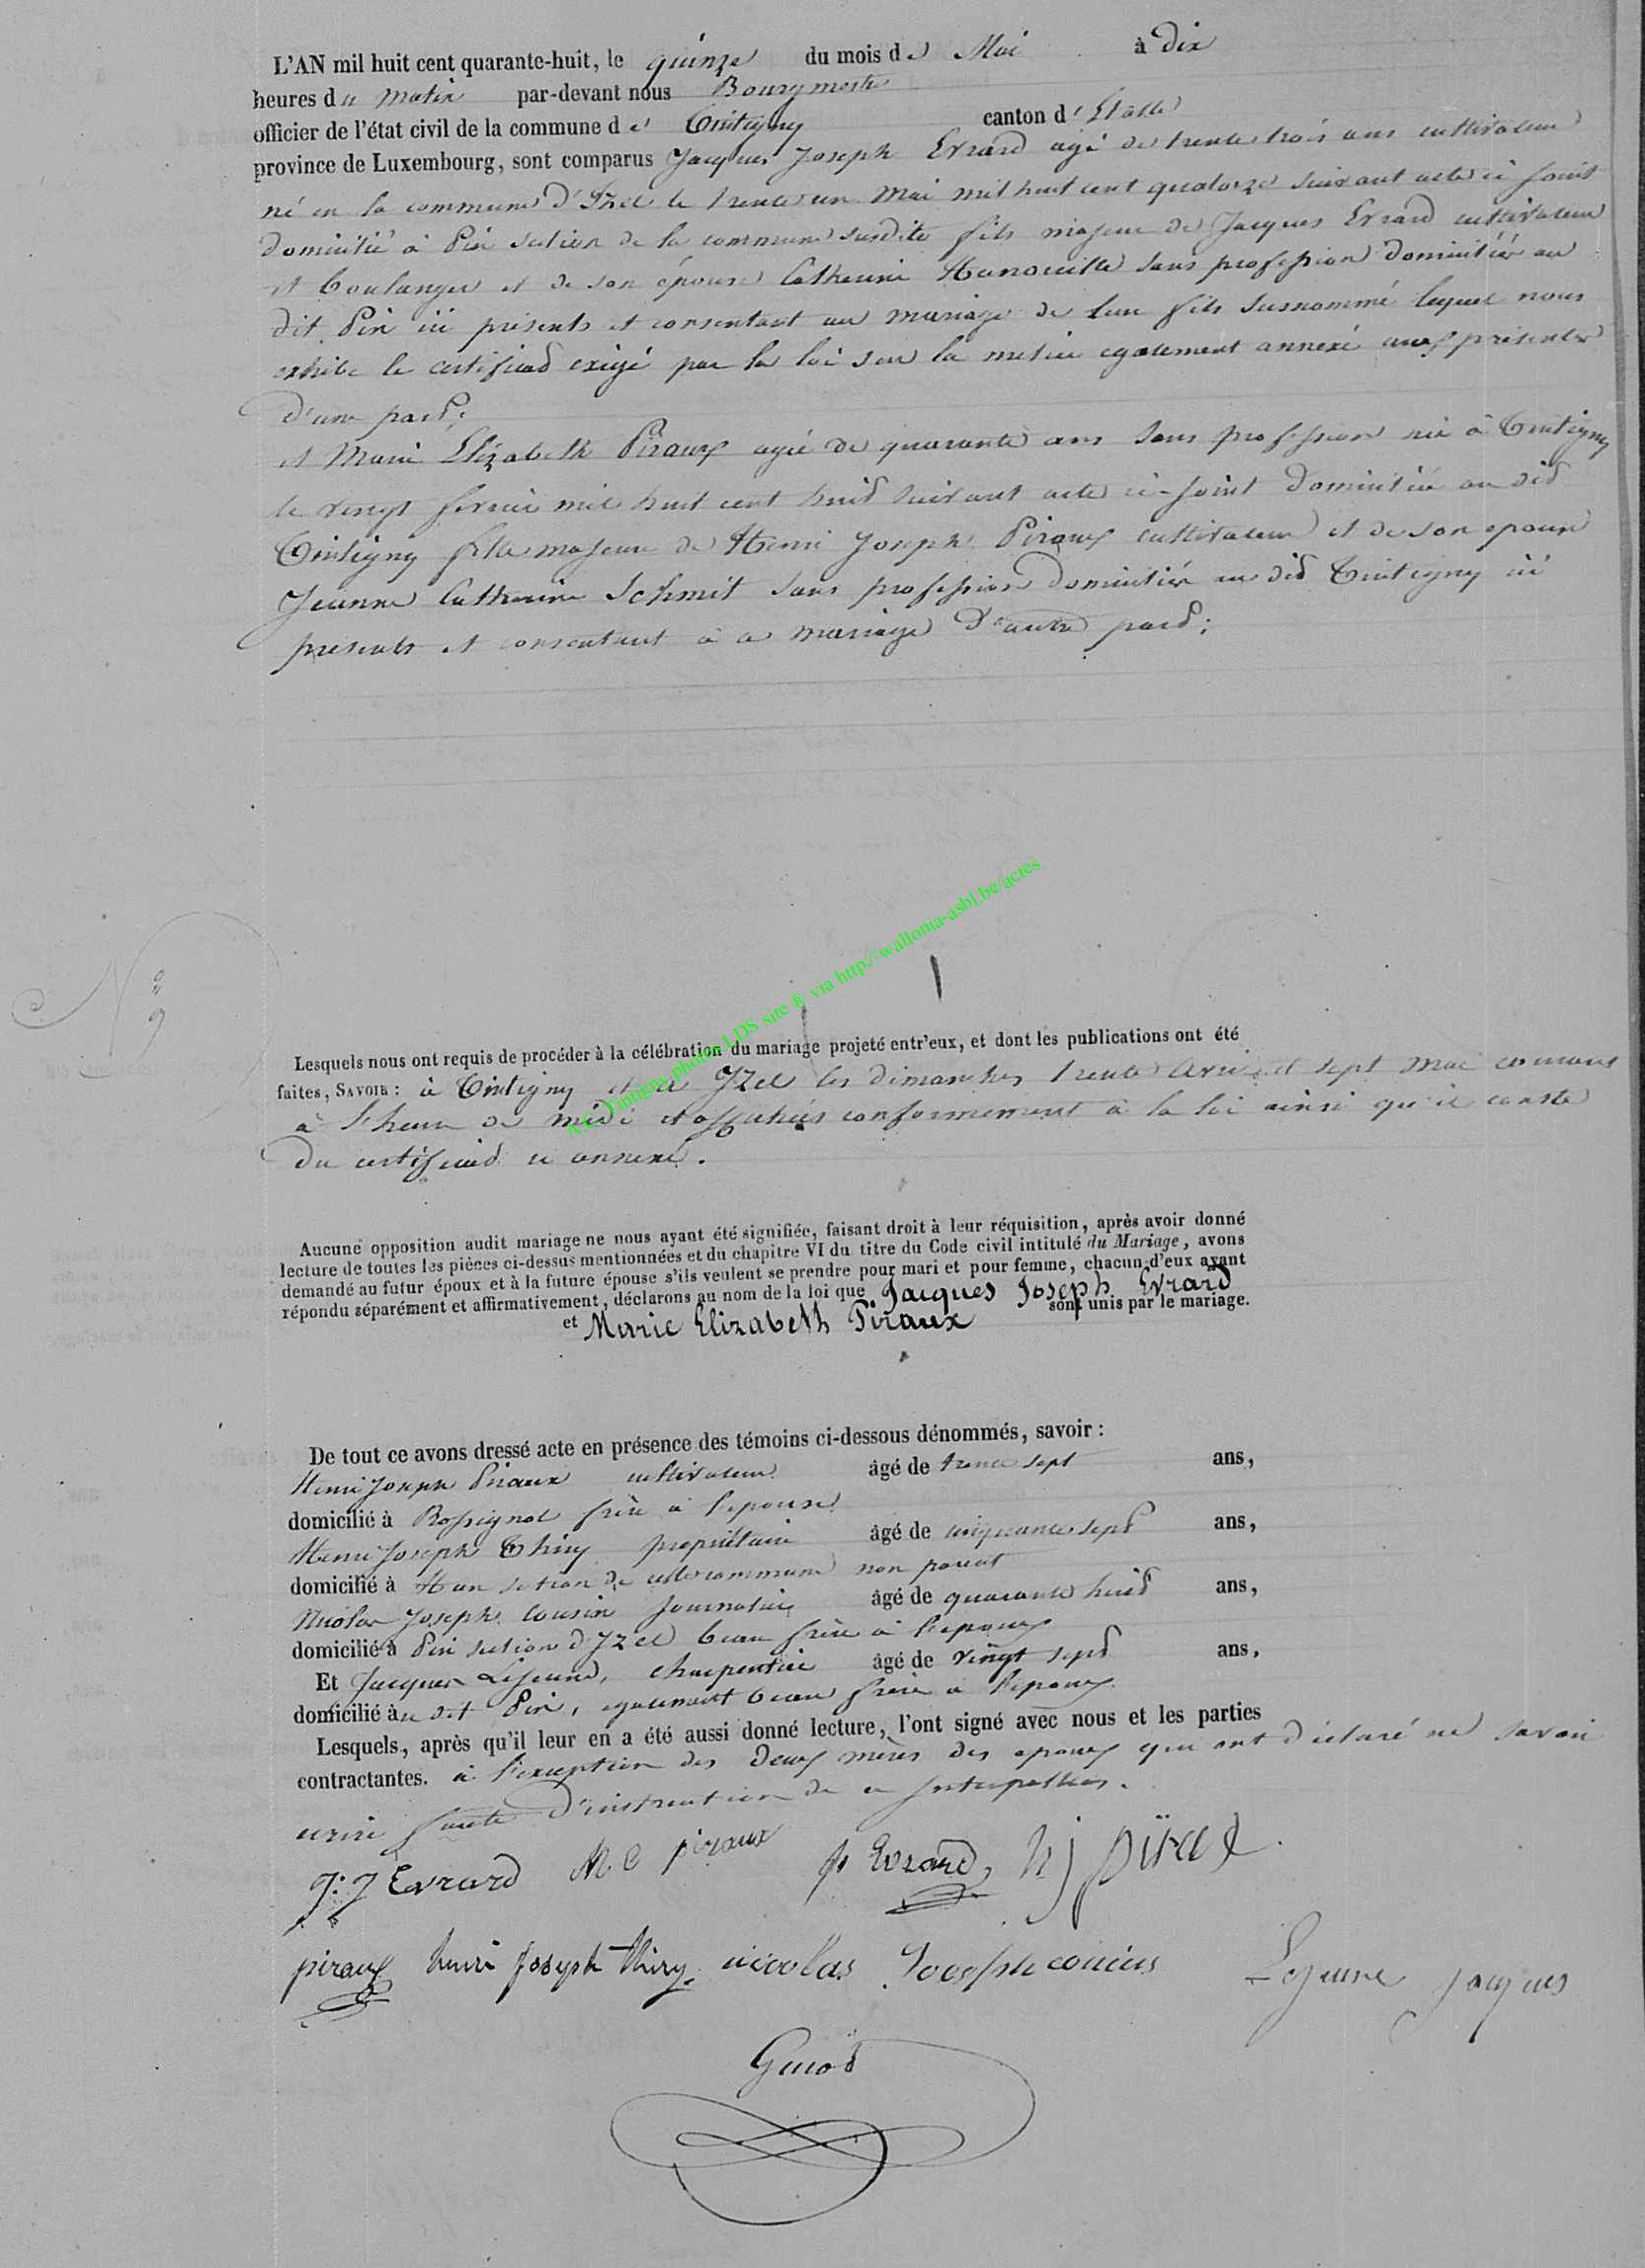 L'AN mil huit cent quarante-huit, le quinze du mois de Mai à dix
heures du matin par-devant nous Bourgmestre
officier de l'état civil de la commune de Tintigny canton d'Etalle
province de Luxembourg, sont comparus Jacques Joseph Evrard agé de trente trois ans cultivateur
né en la commune d'Izel le trente un Mai mil huit cent quatorze suivant acte ci joint
domicilié à Pin section de la commune susdite fils majeur de Jacques Evrard cultivateur
et boulanger et de son épouse Catherine sans profession domiciliés au
dit Pin ici présents et consentant au mariage de leur fils susnommé lequel nous
exhibe le certificat exigé par la loi sur la milice egalement annexé aux présentes
d'une part;
et Marie Elizabeth Piraux agée de quarante ans sans profession née à Tintigny
le vingt fevrier mil huit cent huit suivant acte ci-joint domiciliée au dit
Tintigny fille majeure de Henri Joseph Piraux cultivateur et de son epouse
Jeanne Catherine Schmit sans profession domiciliés au dit Tintigny ici
presents et consentant à ce mariage d'autre part;
N° 9
Lesquels nous ont requis de procéder à la célébration du mariage projeté entr'eux, et dont les publications ont été
faites, SAVOIR : à Tintigny et à Izel les dimanches trente Avril et sept Mai courant
à l'heure de midi et affichées conformement à la loi ainsi qu'il conste
du certificat ci annexé.
A.C. Tintigny photos LDS site ® via http://wallonia-asbl.be/actes
Aucune opposition audit mariage ne nous ayant été signifiée, faisant droit à leur réquisition, après avoir donné
lecture de toutes les pièces ci-dessus mentionnées et du chapitre VI du titre du Code civil intitulé du Mariage, avons
demandé au futur époux et à la future épouse s'ils veulent se prendre pour mari et pour femme, chacun d'eux ayant
répondu séparément et affirmativement, déclarons au nom de la loi que Jacques Joseph Evrard
et Marie Elizabeth Piraux sont unis par le mariage.
De tout ce avons dressé acte en présence des témoins ci-dessous dénommés, savoir :
Henri Joseph Piraux cultivateur âgé de trente sept ans,
domicilié à Rossignol frère à l'epouse
Henri Joseph Thiry propriétaire âgé de cinquante sept ans,
domicilié à Han section de cette commune non parent
Nicolas Joseph Cousin journalier âgé de quarante huit ans,
domicilié à Pin section d'Izel beau frère à l'epoux
Et Jacques Lejeune, charpentier âgé de vingt sept ans,
domicilié au dit Pin, egalement beau frère à l'epoux.
Lesquels, après qu'il leur en a été aussi donné lecture, l'ont signé avec nous et les parties
contractantes. à l'exception des deux mères des epoux qui ont déclaré ne savoir
ecrire faute d'instruction de ce interpellées.
J: J Evrard M E piraux J Evrard, h j piraux
piraux henri joseph thiry nicolas Joseph cousin Lejeune jacques